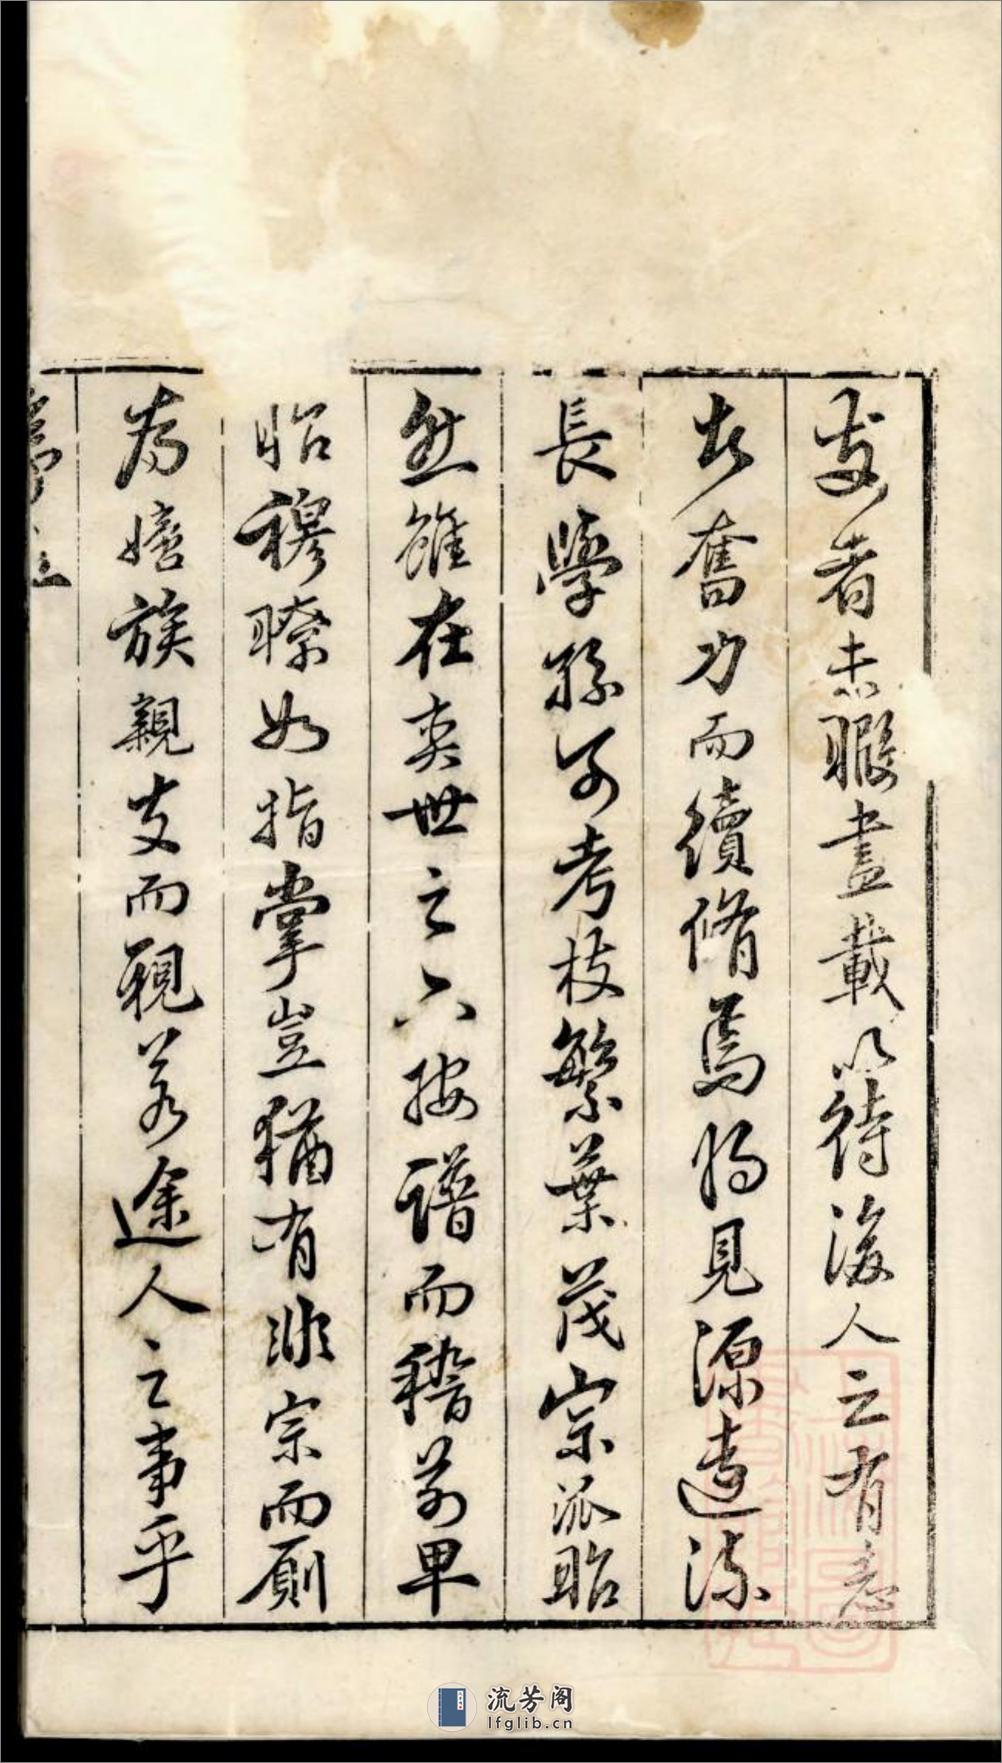 支者未暇盡載以待後人之有志
者奮力而續修焉將見源遠流
長學孫子考枝繁葉茂宗派昭
然雖在奕世之下按譜而稽尊卑
昭穆瞭如指掌豈猶有非宗而冒
為嫡族親支而視若途人之事乎
流芳阁
lfglib.cn